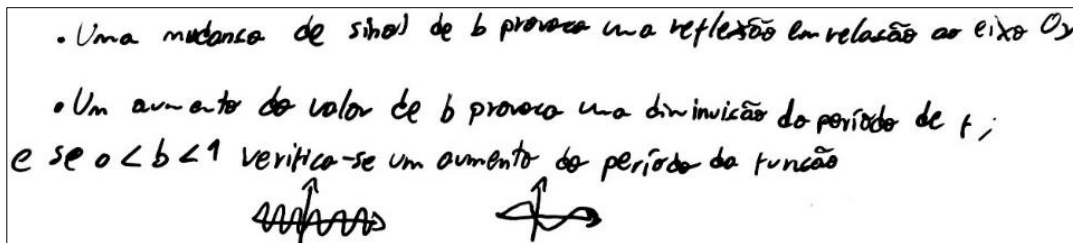 • Uma mudança de sinal de b provoca uma reflexão em relação ao eixo Oy
• Um aumento do valor de b provoca uma diminuição do período de f;
e se 0 < b < 1 verifica-se um aumento do período da função